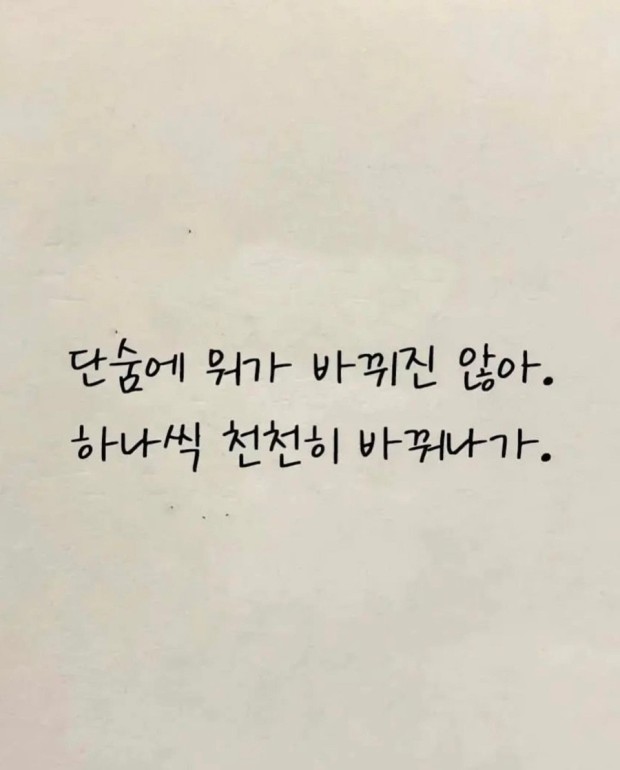 단숨에 뭐가 바뀌진 않아.
하나씩 천천히 바꿔나가.